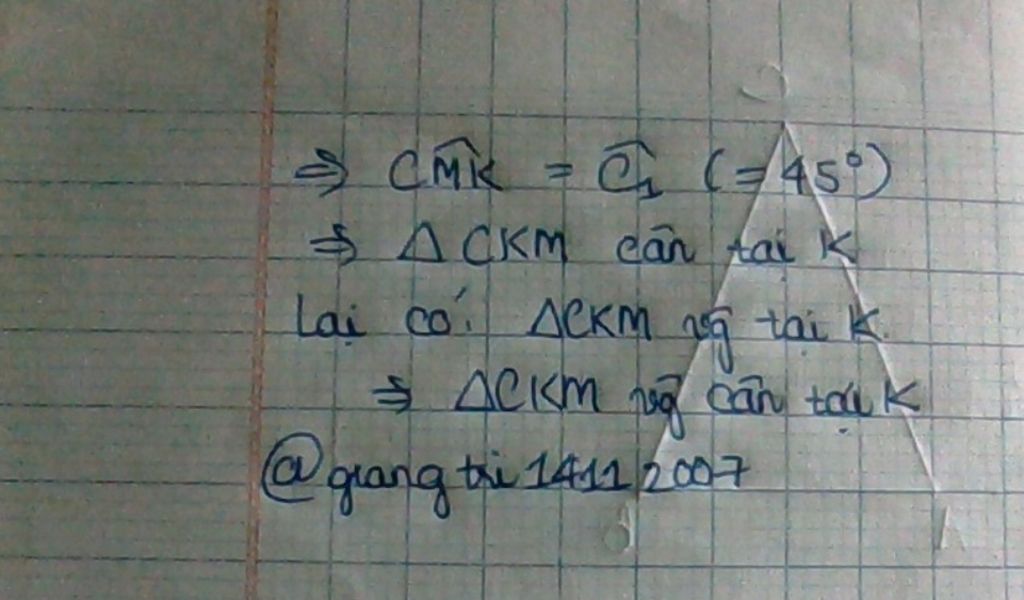 ⇒ CM̂K = Ĉ₁ (= 45°)
⇒ Δ CKM cân tại K
Lại có: ΔCKM vg tại K
⇒ ΔCKM vg cân tại K
@giangtri14112007